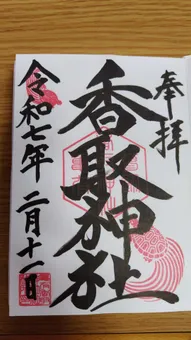 奉拝
香取神社
令和七年二月十一日